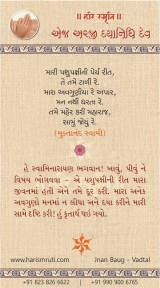 ॥ हरि स्मृति ॥
એજ અરજી દયાનિધિ દેવ
મારી પશુપક્ષીની પેર્ય રીત,
તે તમે ટાળી રે.
મારા અવગુણીયા રે અપાર,
મન નથી ધરતા રે.
તમે મહેર કરી મહારાજ,
સામું જોયું રે.
(મુક્તાનંદ સ્વામી)
હે સ્વામિનારાયણ ભગવાન! ખાવું, પીવું ને
વિષય ભોગવવા – એ પશુપક્ષીની રીત મારા
જીવનમાં હતી એને તમે દૂર કરી. મારા અનેક
અવગુણો મનમાં ન લીધા અને દયા કરીને મારી
સામે દષ્ટિ કરી! હું કૃતાર્થ થઇ ગયો.
www.harismruti.com
Jnan Baug - Vadtal
+91 823 826 6622
+91 990 900 6765